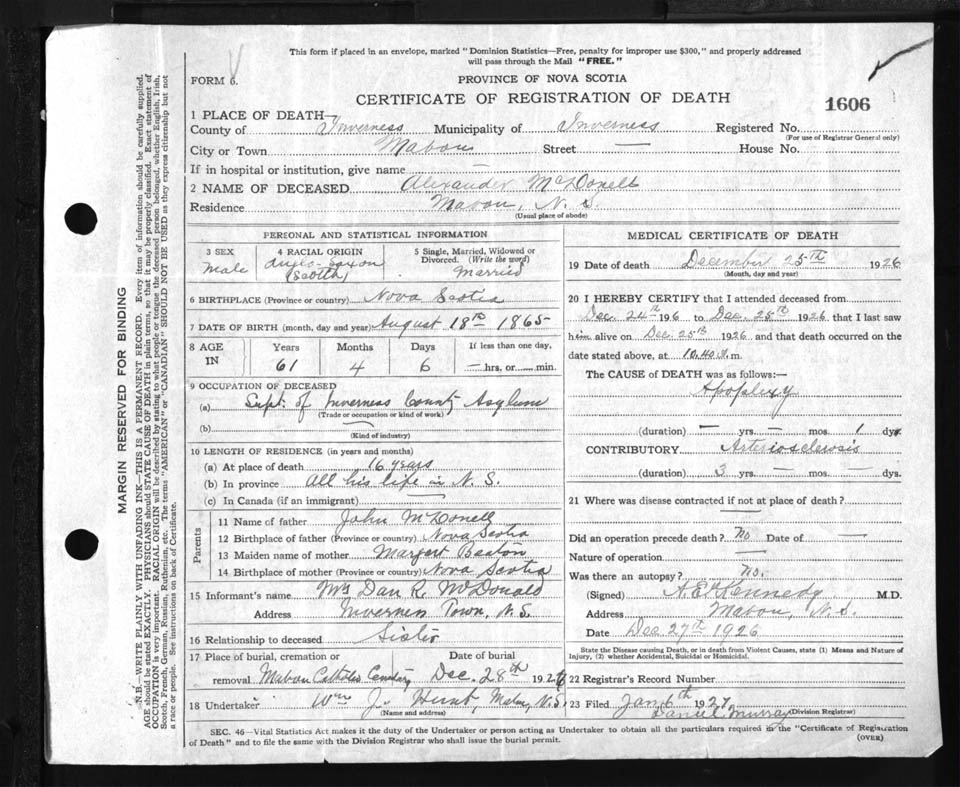 This form if placed in an envelope, marked "Dominion Statistics—Free, penalty for improper use $300," and properly addressed
will pass through the Mail "FREE."
FORM 6.
PROVINCE OF NOVA SCOTIA
CERTIFICATE OF REGISTRATION OF DEATH
1606
1 PLACE OF DEATH—
County of Inverness Municipality of Inverness Registered No.
(For use of Registrar General only)
City or Town Mabou Street — House No.
If in hospital or institution, give name —
2 NAME OF DECEASED Alexander McDonell
Residence Mabou, N. S.
(Usual place of abode)
PERSONAL AND STATISTICAL INFORMATION
3 SEX
Male
4 RACIAL ORIGIN
Anglo-Saxon
(Scotch)
5 Single, Married, Widowed or
Divorced. (Write the word)
Married
6 BIRTHPLACE (Province or country) Nova Scotia
7 DATE OF BIRTH (month, day and year) August 18th 1865
8 AGE IN
Years Months Days If less than one day,
61 4 6 — hrs, or — min.
9 OCCUPATION OF DECEASED
(a) Supt. of Inverness County Asylum
(Trade or occupation or kind of work)
(b) —
(Kind of industry)
10 LENGTH OF RESIDENCE (in years and months)
(a) At place of death 16 years
(b) In province All his life in N. S.
(c) In Canada (if an immigrant) —
Parents
11 Name of father John McDonell
12 Birthplace of father (Province or country) Nova Scotia
13 Maiden name of mother Margert Beaton
14 Birthplace of mother (Province or country) Nova Scotia
15 Informant's name Mrs Dan R. McDonald
Address Inverness Town, N.S.
16 Relationship to deceased Sister
17 Place of burial, cremation or Date of burial
removal Mabou Catholic Cemetery Dec. 28th 1926
18 Undertaker Wm J. Hunt, Mabou, N.S.
(Name and address)
MEDICAL CERTIFICATE OF DEATH
19 Date of death December 25th 1926
(Month, day and year)
20 I HEREBY CERTIFY that I attended deceased from
Dec. 24th 196 to Dec. 25th 1926 that I last saw
him alive on Dec 25th 1926 and that death occurred on the
date stated above, at 10.40 .m.
The CAUSE of DEATH was as follows:—
Apoplexy
(duration) — yrs. — mos. 1 dys.
CONTRIBUTORY Arteriosclerosis
(duration) 3 yrs. — mos. — dys.
21 Where was disease contracted if not at place of death?
—
Did an operation precede death? No Date of —
Nature of operation —
Was there an autopsy? No.
(Signed) Kennedy M.D.
Address Mabou, N.S.
Date Dec 27th 1926
State the Disease causing Death, or in death from Violent Causes, state (1) Means and Nature of
Injury, (2) whether Accidental, Suicidal or Homicidal.
22 Registrar's Record Number
23 Filed Jan 6th 1927
Daniel Murray (Division Registrar)
SEC. 46—Vital Statistics Act makes it the duty of the Undertaker or person acting as Undertaker to obtain all the particulars required in the "Certificate of Registration
of Death" and to file the same with the Division Registrar who shall issue the burial permit.
(OVER)
MARGIN RESERVED FOR BINDING
N.B.—WRITE PLAINLY WITH UNFADING INK—THIS IS A PERMANENT RECORD. Every item of information should be carefully supplied.
AGE should be stated EXACTLY. PHYSICIANS should STATE CAUSE OF DEATH in plain terms, so that it may be properly classified. Exact statement of
OCCUPATION is very important. RACIAL ORIGIN will be described by stating to what people or tongue the deceased person belonged, whether English, Irish,
Scotch, French, German, Russian, Ruthenian, etc. The terms "AMERICAN" or "CANADIAN" SHOULD NOT BE USED as they express citizenship but not
a race or people. See instructions on back of Certificate.